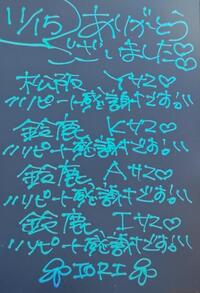 11/15 ありがとう
ございました♡
松阪 Yサン♡
リピート感謝です!!
鈴鹿 Kサン♡
リピート感謝です!!
鈴鹿 Aサン♡
リピート感謝です!!
鈴鹿 Iサン♡
リピート感謝です!!
IORI